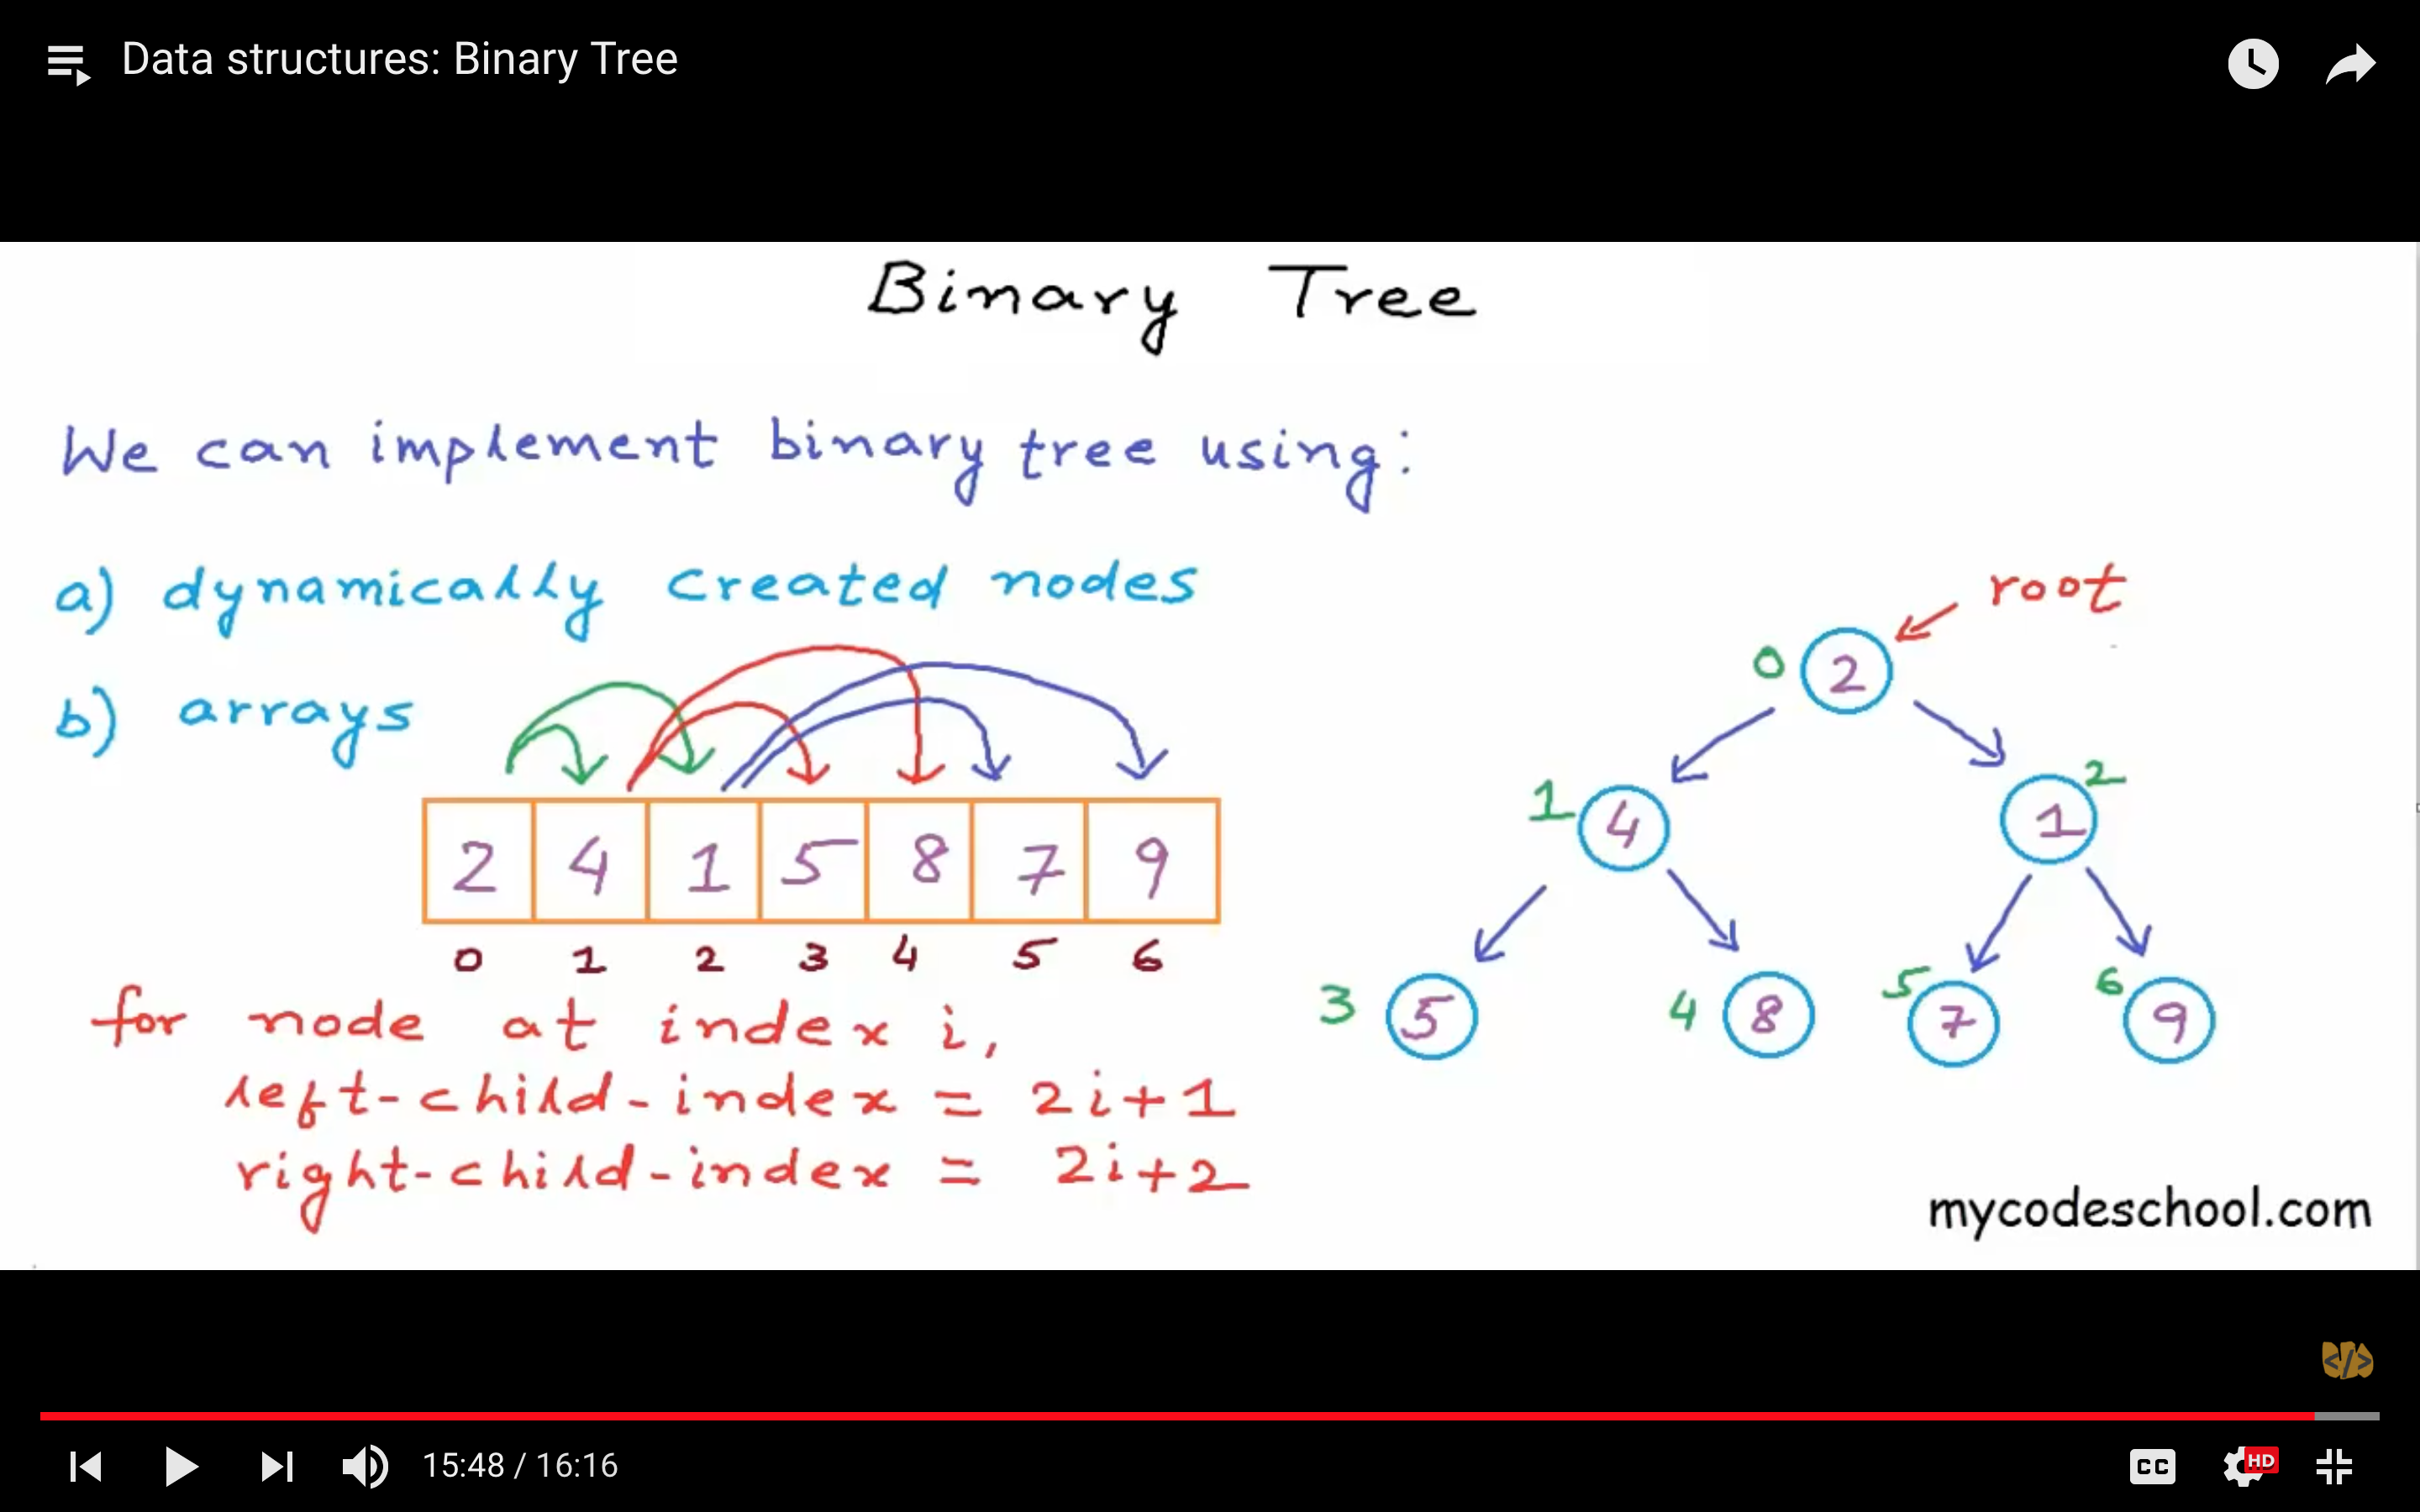 Data structures: Binary Tree
Binary Tree
We can implement binary tree using:
a) dynamically created nodes
b) arrays
2 4 1 5 8 7 9
0 1 2 3 4 5 6
for node at index i,
left-child-index = 2i+1
right-child-index = 2i+2
root
0 2
1 4 1 2
3 5 4 8 5 7 6 9
mycodeschool.com
</>
15:48 / 16:16
CC HD